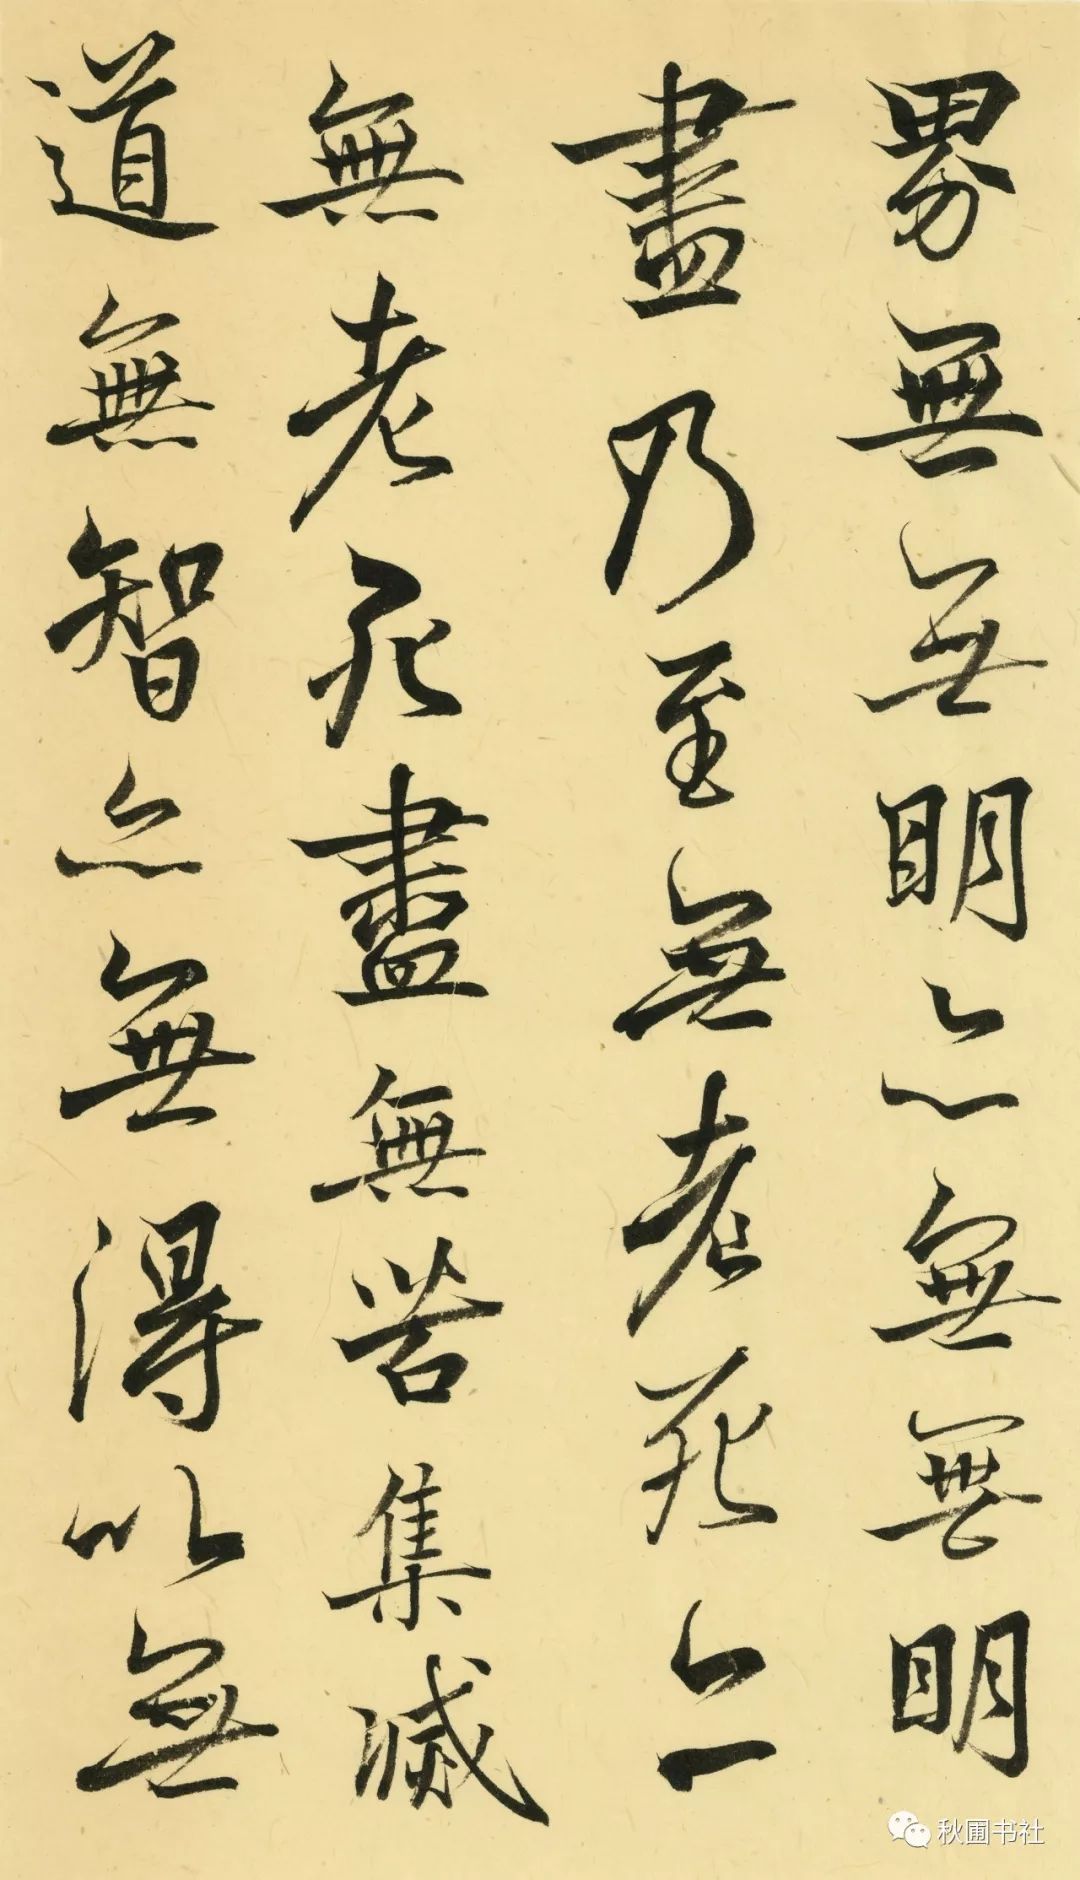 界無無明亦無無明
盡乃至無老死亦
無老死盡無苦集滅
道無智亦無得以無
秋圃书社